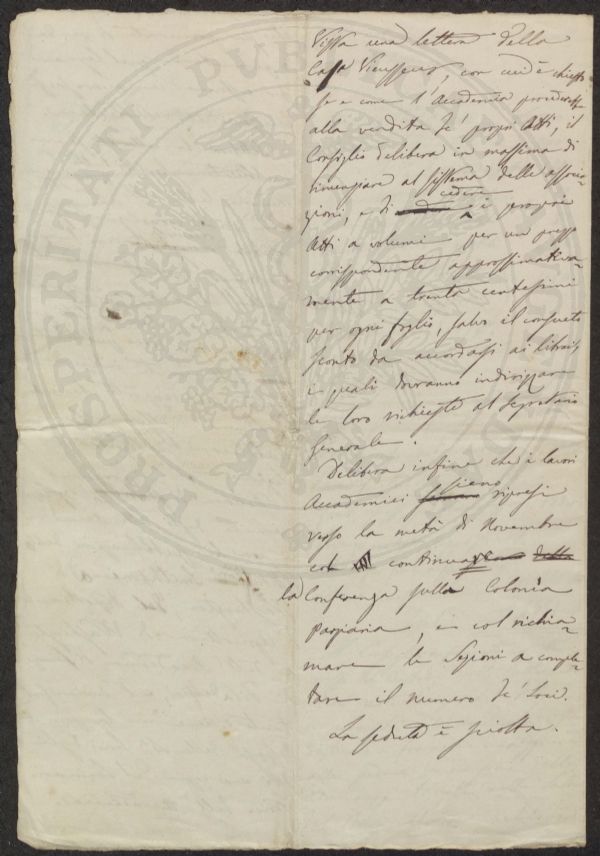 PROSPERITATI PUBLICAE
Vista una lettera della
Casa Vieusseux, con cui è chiesto
se e come l'Accademia provvederebbe
alla vendita de' propri Atti, il
Consiglio delibera in massima di
rinunziare al sistema delle associa-
zioni, e di cedere i propri
Atti a volumi per un prezzo
corrispondente approssimativa-
mente a trenta centesimi
per ogni foglio, salvo il consueto
sconto da accordarsi ai librai,
i quali dovranno indirizzare
le loro richieste al Segretario
Generale.
Delibera infine che i lavori
Accademici siano ripresi
verso la metà di Novembre
col continuare della
la Conferenza sulla Colonia
Parziaria, e col richia-
mare le Sezioni a comple-
tare il numero de' Soci.
La seduta è sciolta.